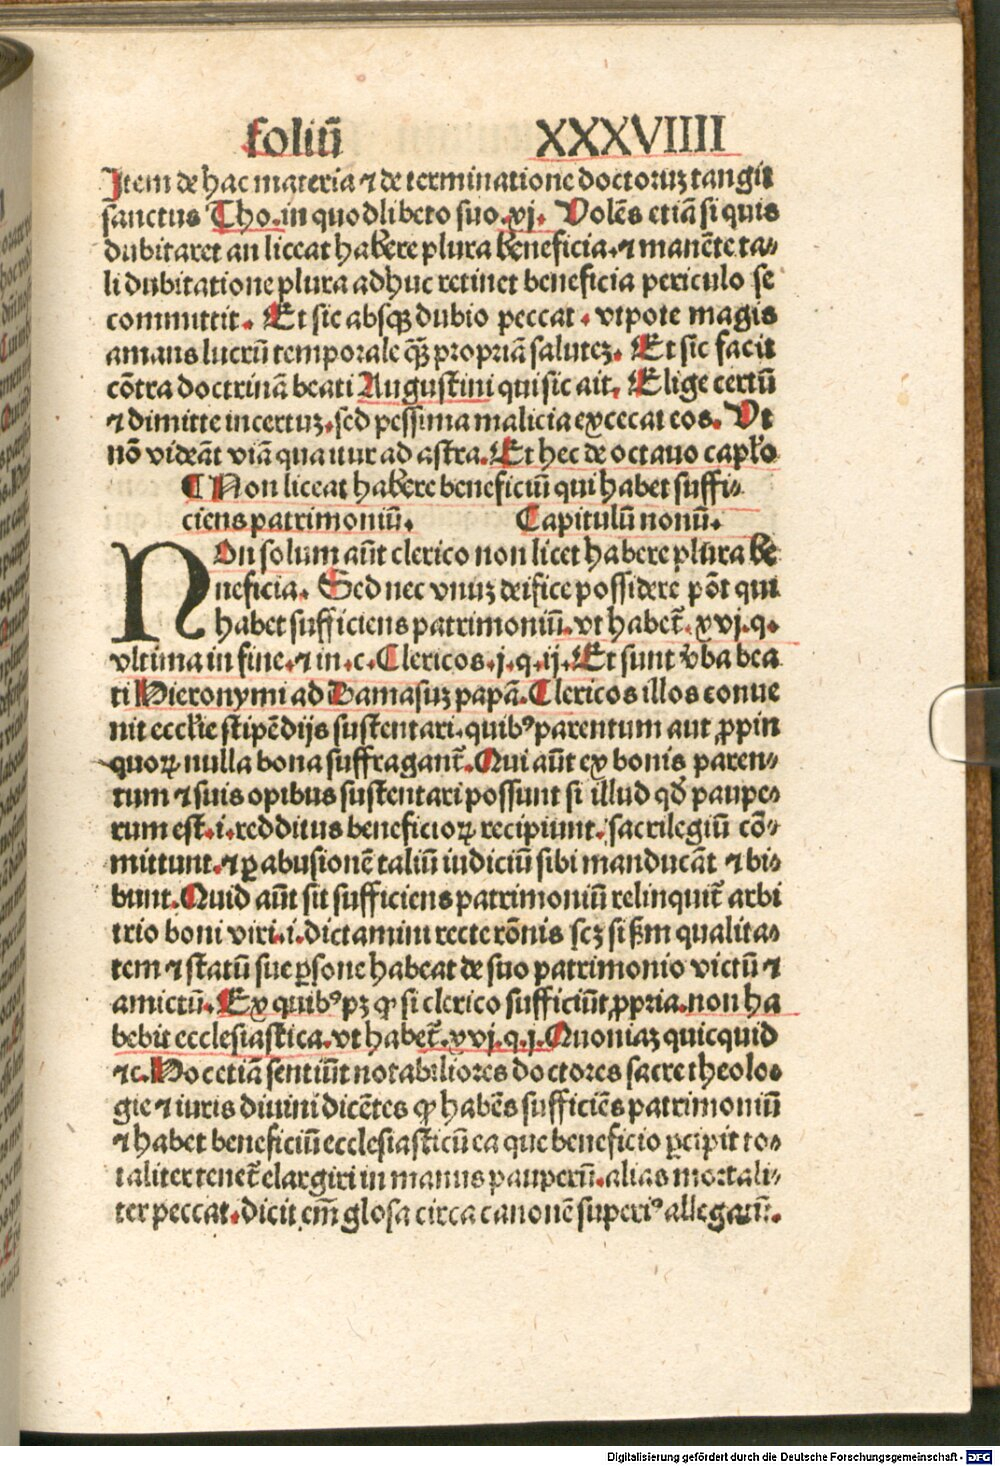 foliū XXXVIIII
Item de hac materia ⁊ de terminatione doctoruꝫ tangit
sanctus Tho. in quodlibeto suo .xj. Volēs etiā si quis
dubitaret an liceat habere plura beneficia. ⁊ manēte ta-
li dubitatione plura adhuc retinet beneficia periculo se
committit. Et sic absqꝫ dubio peccat . vtpote magis
amans lucrū temporale qꝫ̄ propriā saluteꝫ. Et sic facit
cōtra doctrinā beati Augustini qui sic ait. Elige certū
⁊ dimitte incertuꝫ. sed pessima malicia excecat eos. Vt
nō videāt viā qua itur ad astra. Et hec de octauo capło
¶ Non liceat habere beneficiū qui habet suffi-
ciens patrimoniū. Capitulū nonū.
NOn solum aūt clerico non licet habere plura be
neficia. Sed nec vnuꝫ deifice possidere pōt qui
habet sufficiens patrimoniū. vt habet̄. xvj. q.
vltima in fine. ⁊ in .c. Clericos .j. q. ij. Et sunt v̓ba bea
ti Hieronymi ad Damasuꝫ papā. Clericos illos conue
nit ecclie stipēdijs sustentari. quibꝰ parentum aut ꝓpin
quoꝝ nulla bona suffragant̄. Qui aūt ex bonis paren-
tum ⁊ suis opibus sustentari possunt si illud qđ paupe-
rum est .i. redditus beneficioꝝ recipiunt. sacrilegiū cō-
mittunt. ⁊ ꝑ abusionē taliū iudiciū sibi manducāt ⁊ bi-
bunt. Quid aūt sit sufficiens patrimoniū relinquit̄ arbi
trio boni viri .i. dictamini recte rōnis scꝫ si ẜm qualita-
tem ⁊ statū sue ꝑsone habeat de suo patrimonio victū ⁊
amictū. Ex quibꝰ pꝫ ꝙ si clerico sufficiūt ꝓpria. non ha
bebit ecclesiastica. vt habet̄. xvj. q. j. Quoniaꝫ quicquid
⁊c. Hoc etiā sentiūt notabiliores doctores sacre theolo-
gie ⁊ iuris diuini dicētes ꝙ habēs sufficiēs patrimoniū
⁊ habet beneficiū ecclesiasticū ea que beneficio ꝑcipit to-
taliter tenet̄ elargiri in manus pauperū. alias mortali-
ter peccat. dicit em̄ glosa circa canonē superiꝰ allegatū.
Digitalisierung gefördert durch die Deutsche Forschungsgemeinschaft - DFG